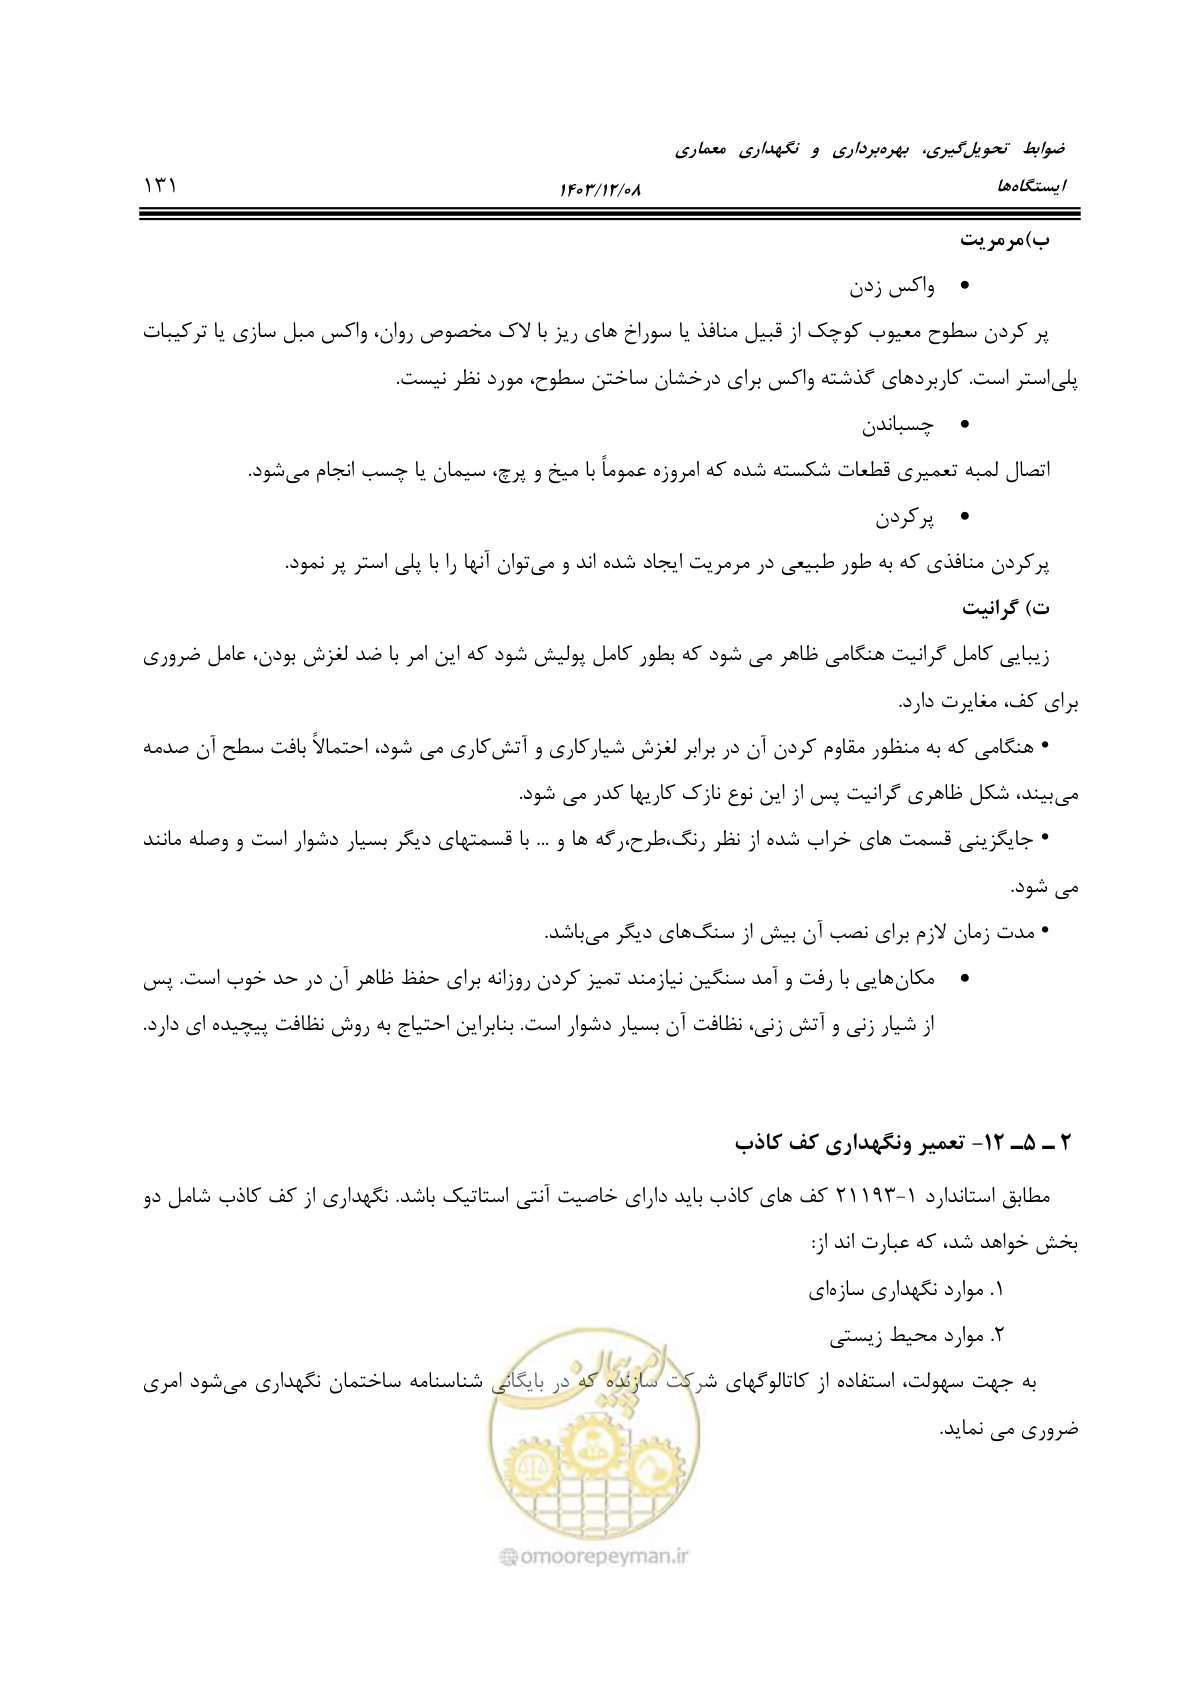 ضوابط تحویل‌گیری، بهره‌برداری و نگهداری معماری
ایستگاه‌ها
۱۴۰۳/۱۲/۰۸
۱۳۱
ب)مرمریت
• واکس زدن
پر کردن سطوح معیوب کوچک از قبیل منافذ یا سوراخ های ریز با لاک مخصوص روان، واکس مبل سازی یا ترکیبات
پلی‌استر است. کاربردهای گذشته واکس برای درخشان ساختن سطوح، مورد نظر نیست.
• چسباندن
اتصال لمبه تعمیری قطعات شکسته شده که امروزه عموماً با میخ و پرچ، سیمان یا چسب انجام می‌شود.
• پرکردن
پرکردن منافذی که به طور طبیعی در مرمریت ایجاد شده اند و می‌توان آنها را با پلی استر پر نمود.
ت) گرانیت
زیبایی کامل گرانیت هنگامی ظاهر می شود که بطور کامل پولیش شود که این امر با ضد لغزش بودن، عامل ضروری
برای کف، مغایرت دارد.
• هنگامی که به منظور مقاوم کردن آن در برابر لغزش شیارکاری و آتش‌کاری می شود، احتمالاً بافت سطح آن صدمه
می‌بیند، شکل ظاهری گرانیت پس از این نوع نازک کاریها کدر می شود.
• جایگزینی قسمت های خراب شده از نظر رنگ،طرح،رگه ها و ... با قسمتهای دیگر بسیار دشوار است و وصله مانند
می شود.
• مدت زمان لازم برای نصب آن بیش از سنگ‌های دیگر می‌باشد.
• مکان‌هایی با رفت و آمد سنگین نیازمند تمیز کردن روزانه برای حفظ ظاهر آن در حد خوب است. پس
از شیار زنی و آتش زنی، نظافت آن بسیار دشوار است. بنابراین احتیاج به روش نظافت پیچیده ای دارد.
۲ ــ ۵ــ ۱۲- تعمیر ونگهداری کف کاذب
مطابق استاندارد ۱-۲۱۱۹۳ کف های کاذب باید دارای خاصیت آنتی استاتیک باشد. نگهداری از کف کاذب شامل دو
بخش خواهد شد، که عبارت اند از:
۱. موارد نگهداری سازه‌ای
۲. موارد محیط زیستی
به جهت سهولت، استفاده از کاتالوگهای شرکت سازنده که در بایگانی شناسنامه ساختمان نگهداری می‌شود امری
ضروری می نماید.
امور پیمان
@omoorepeyman.ir